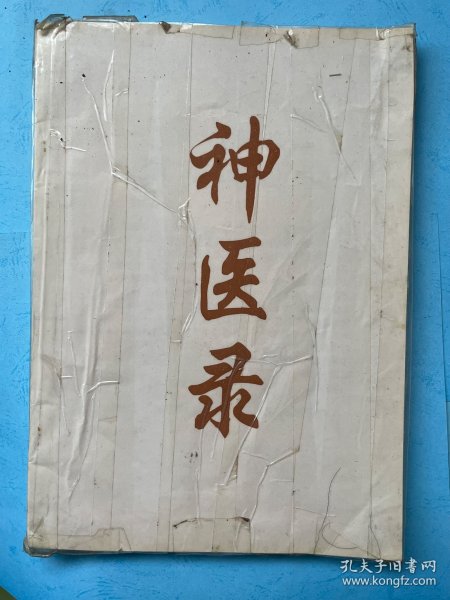 神医录
孔夫子旧书网
www.kongfz.com